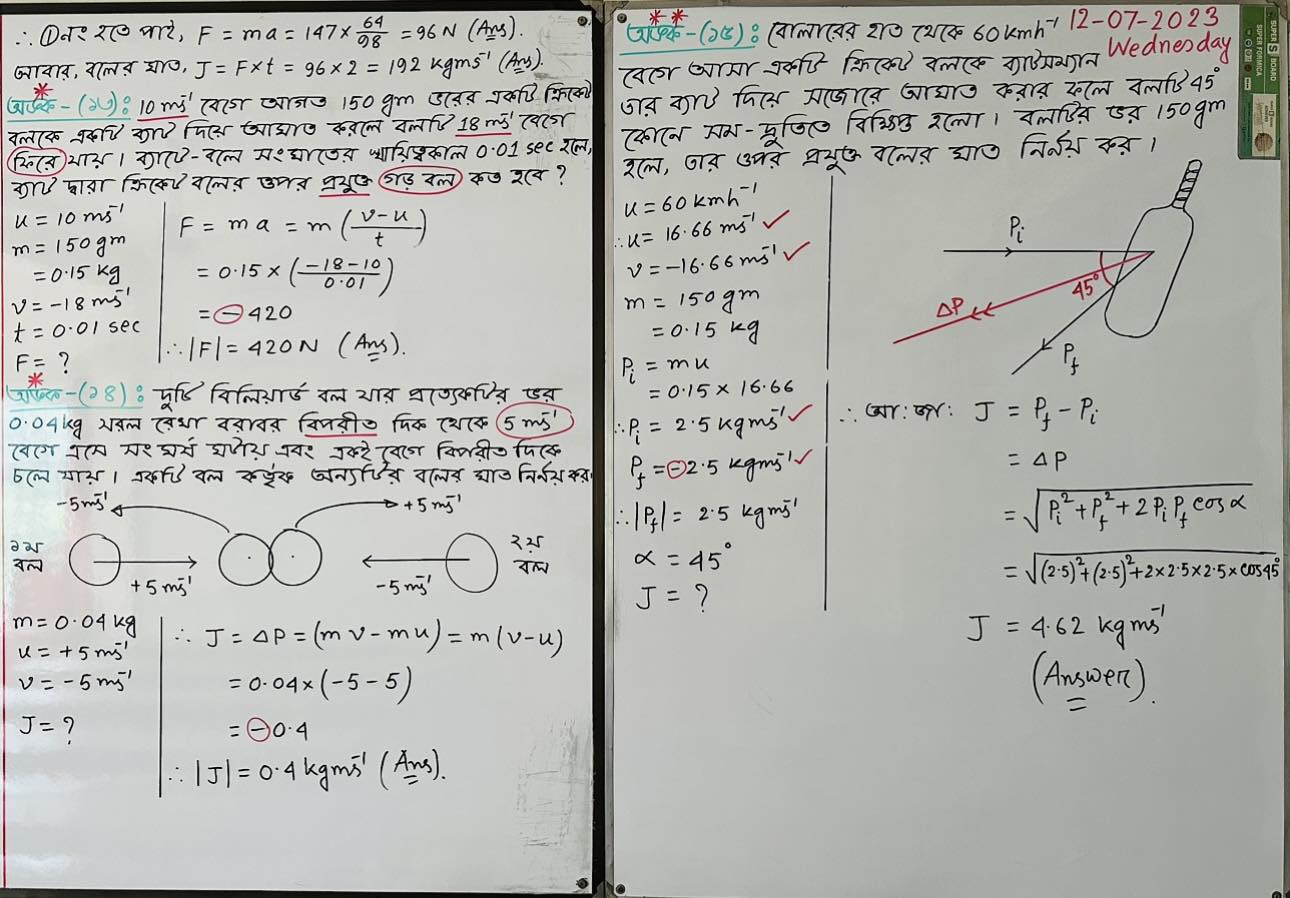 ∴ ①নং হতে পাই, F = ma = 147 × 64/98 = 96 N (Ans).
আবার, বলের ঘাত, J = F×t = 96 × 2 = 192 kgms⁻¹ (Ans).
অংক-(১৩): 10 ms⁻¹ বেগে আগত 150 gm ভরের একটি ক্রিকেট
বলকে একটি ব্যাট দিয়ে আঘাত করলে বলটি 18 ms⁻¹ বেগে
ফিরে যায়। ব্যাটে-বলে সংঘাতের স্থায়িত্বকাল 0.01 sec হলে,
ব্যাট দ্বারা ক্রিকেট বলের ওপর প্রযুক্ত গড় বল কত হবে?
u = 10 ms⁻¹
m = 150 gm
= 0.15 kg
v = -18 ms⁻¹
t = 0.01 sec
F = ?
F = ma = m (v-u/t)
= 0.15 × (-18-10/0.01)
= -420
∴ |F| = 420 N (Ans).
অংক-(১৪): দুটি বিলিয়ার্ড বল যার প্রত্যেকটির ভর
0.04 kg সরল রেখা বরাবর বিপরীত দিক থেকে 5 ms⁻¹
বেগে এসে সংঘর্ষ ঘটায় এবং একই বেগে বিপরীত দিকে
চলে যায়। একটি বল কর্তৃক অন্যটির বলের ঘাত নির্নয় কর।
-5ms⁻¹
+5ms⁻¹
১ম
বল
+5ms⁻¹
-5ms⁻¹
২য়
বল
m = 0.04 kg
u = +5 ms⁻¹
v = -5 ms⁻¹
J = ?
∴ J = ΔP = (mv - mu) = m (v-u)
= 0.04 × (-5-5)
= -0.4
∴ |J| = 0.4 kgms⁻¹ (Ans).
12-07-2023
Wednesday
অংক-(১৫): বোলারের হাত থেকে 60 kmh⁻¹
বেগে আসা একটি ক্রিকেট বলকে ব্যাটসম্যান
তার ব্যাট দিয়ে সজোরে আঘাত করার ফলে বলটি 45°
কোনে সম-দ্রুতিতে বিক্ষিপ্ত হলো। বলটির ভর 150 gm
হলে, তার ওপর প্রযুক্ত বলের ঘাত নির্নয় কর।
u = 60 kmh⁻¹
∴ u = 16.66 ms⁻¹ ✓
v = -16.66 ms⁻¹ ✓
m = 150 gm
= 0.15 kg
Pᵢ = mu
= 0.15 × 16.66
∴ Pᵢ = 2.5 kgms⁻¹ ✓
P_f = -2.5 kgms⁻¹ ✓
∴ |P_f| = 2.5 kgms⁻¹
α = 45°
J = ?
Pᵢ
45°
ΔP
P_f
∴ আঃ জাঃ J = P_f - Pᵢ
= ΔP
= √(Pᵢ² + P_f² + 2PᵢP_f cosα)
= √((2.5)² + (2.5)² + 2×2.5×2.5×cos45°)
J = 4.62 kgms⁻¹
(Answer).
SUPER S BOARD
SUPER FORMICA